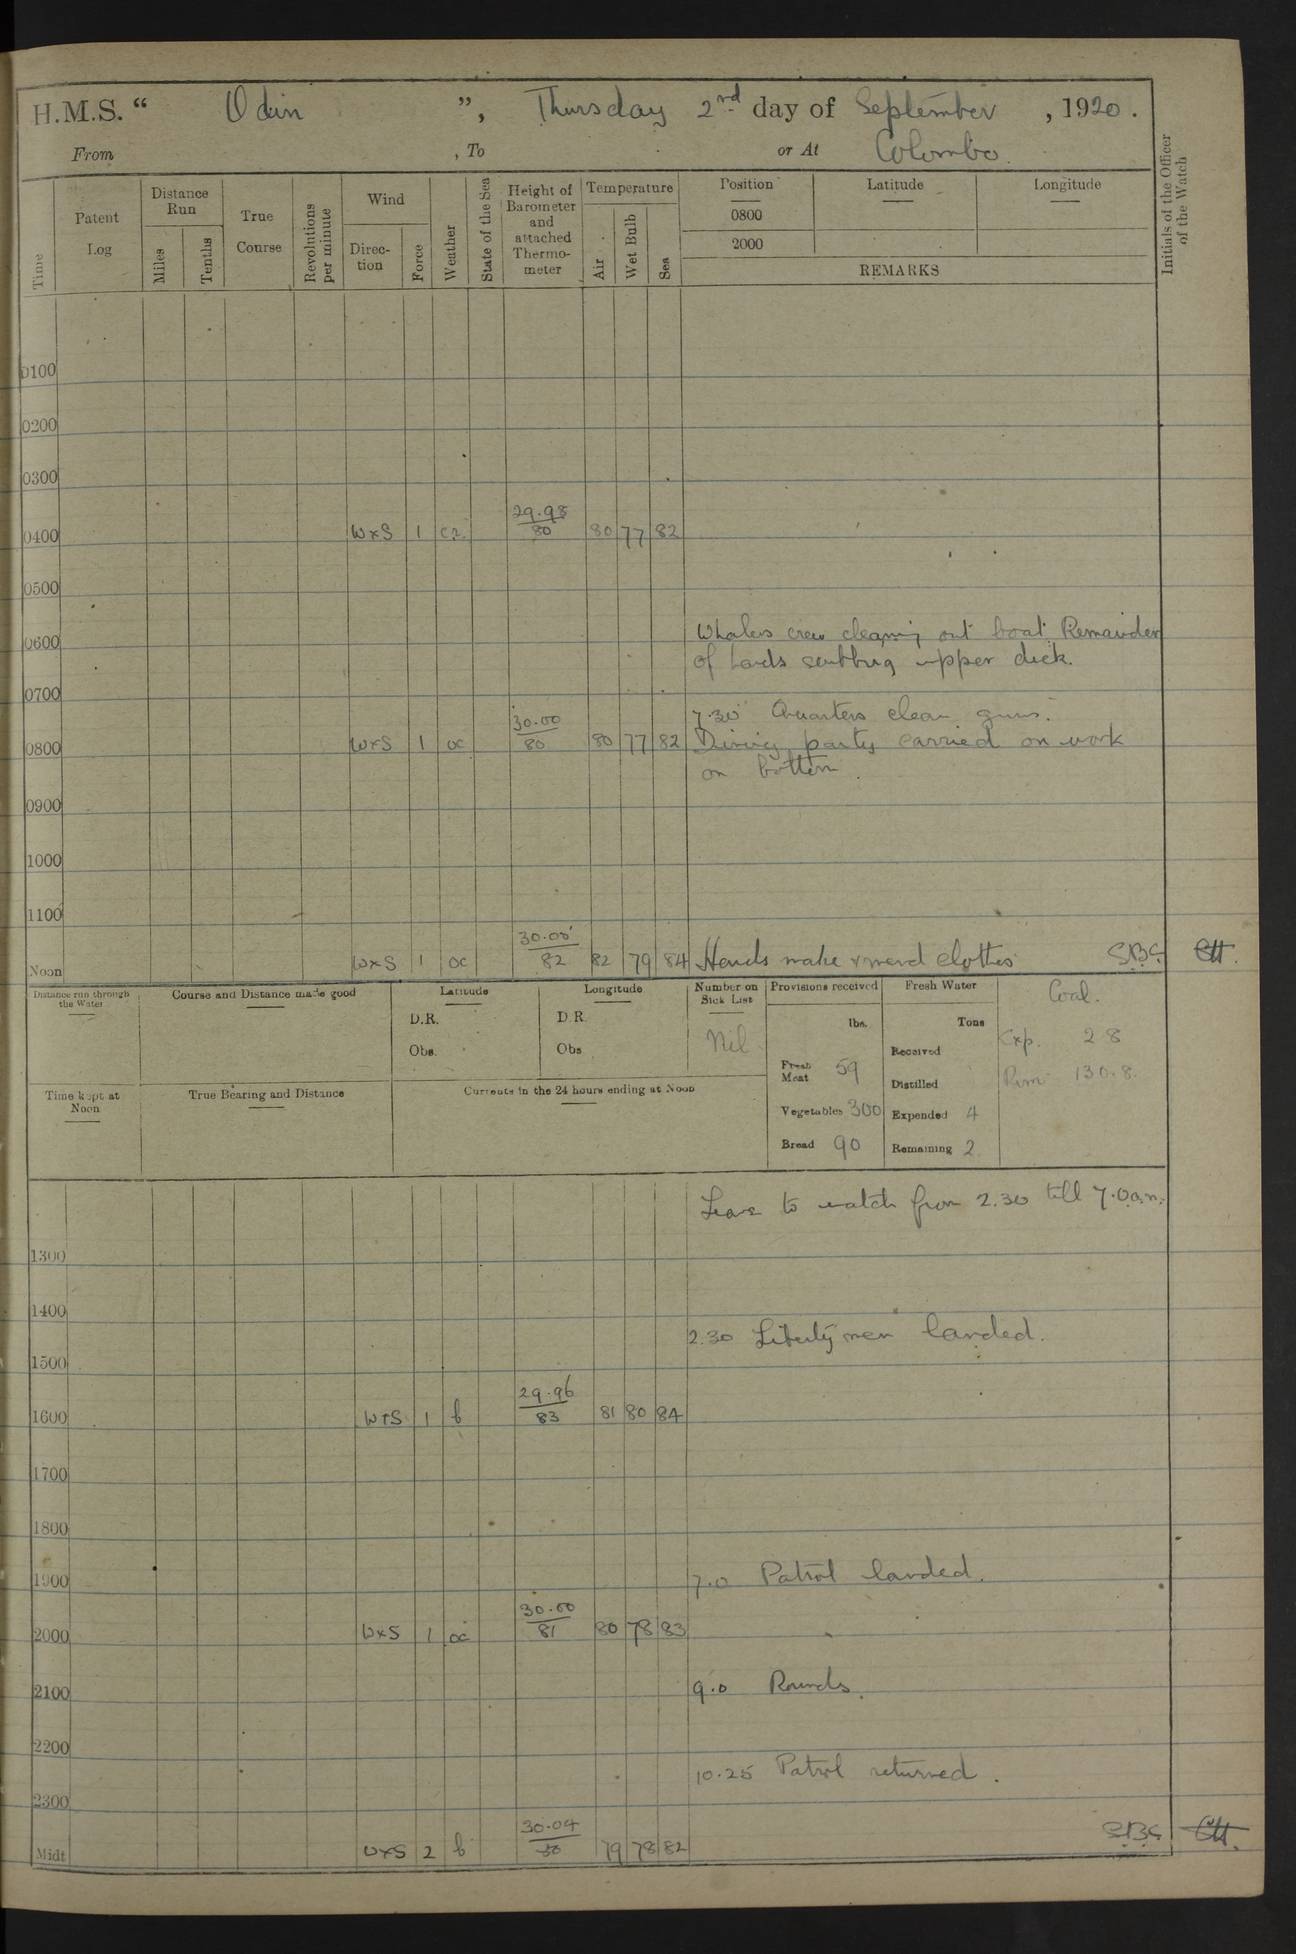 H.M.S. “ Odin ”, Thursday 2nd day of September , 1920.
From , To or At Colombo.
Time
Patent Log
Distance Run
Miles
Tenths
True Course
Revolutions per minute
Wind
Direction
Force
Weather
State of the Sea
Height of Barometer and attached Thermometer
Temperature
Air
Wet Bulb
Sea
Position Latitude Longitude
0800
2000
REMARKS
Initials of the Officer of the Watch
0100
0200
0300
0400 WxS 1 29.98/80 80 77 82
0500
0600 Whalers crew cleaning out boat. Remainder
of hands scubbing upper deck.
0700
7.30 Quarters clean guns.
0800 WxS 1 oc 30.00/80 80 77 82 Diving party carried on work
on bottom.
0900
1000
1100
Noon WxS 1 oc 30.00/82 82 79 84 Hands make & mend clothes S.B.G.
Distance run through the Water
Course and Distance made good
Latitude
D.R.
Obs.
Longitude
D.R.
Obs
Number on Sick List
Nil
Provisions received
lbs.
Fresh Meat 59
Vegetables 300
Bread 90
Fresh Water
Tons
Received
Distilled
Expended 4
Remaining 2
Coal.
Exp. 2 8
Rem 130.8.
Time kept at Noon
True Bearing and Distance
Currents in the 24 hours ending at Noon
Leave to watch from 2.30 till 7.0a.m.
1300
1400
2.30 Liberty men landed.
1500
1600 WxS 1 b 29.96/83 81 80 84
1700
1800
1900 7.0 Patrol landed.
2000 WxS 1 oc 30.00/81 80 78 83
2100 9.0 Rounds.
2200
10.25 Patrol returned.
2300
Midt WxS 2 b 30.04 79 78 82 S.B.G.